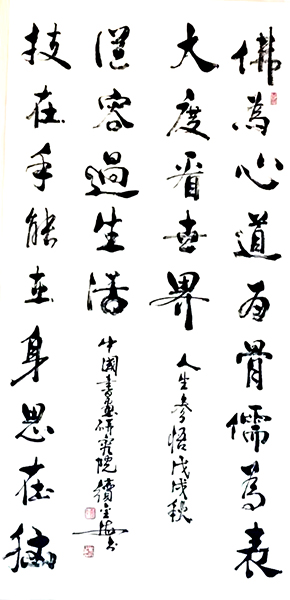 佛為心道為骨儒為表
大度看世界
人生參悟戊戌秋
從容過生活
中國書畫研究院
技在手能在身思在腦